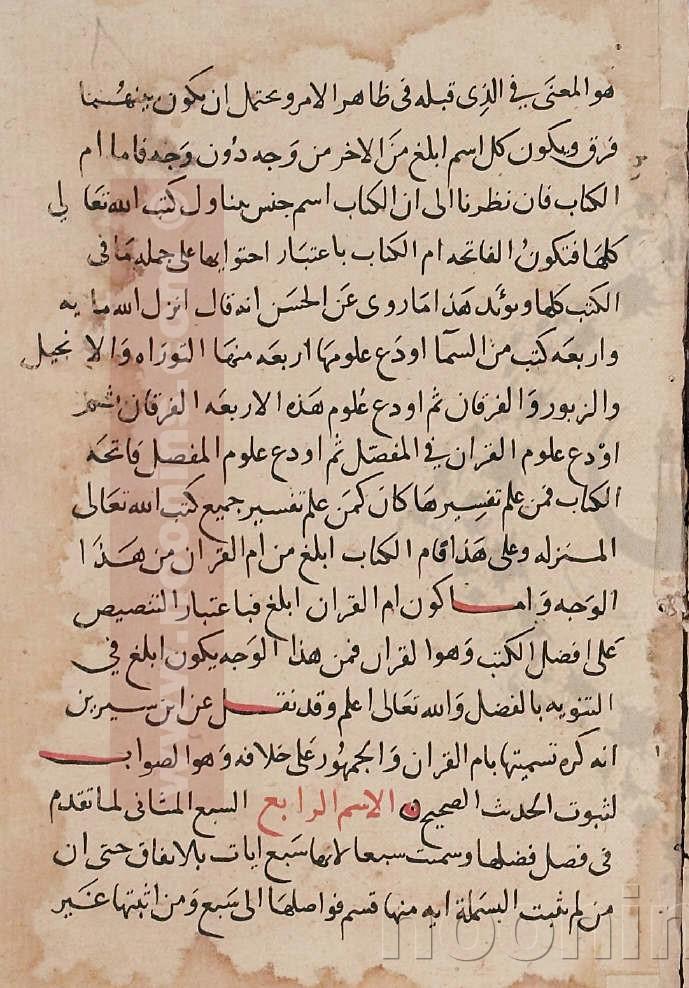 هو المعنى في الذي قبله في ظاهر الامر ويحتمل ان يكون بينهما
فرق ويكون كل اسم ابلغ من الاخر من وجه دون وجه فاما ام
الكتاب فان نظرنا الى ان الكتاب اسم جنس يتناول كتب الله تعالى
كلها فتكون الفاتحه ام الكتاب باعتبار احتوايها على جمله ما في
الكتب كلها ويؤيد هذا ما روى عن الحسن انه قال انزل الله مايه
واربعه كتب من السما اودع علومها اربعه منها التوراه والانجيل
والزبور والفرقان ثم اودع علوم هذه الاربعه الفرقان ثم
اودع علوم القران في المفصل ثم اودع علوم المفصل فاتحه
الكتاب فمن علم تفسيرها كان كمن علم تفسير جميع كتب الله تعالى
المنزله وعلى هذا فام الكتاب ابلغ من ام القران من هذا
الوجه واما كون ام القران ابلغ فباعتبار التنصيص
على افضل الكتب وهو القران فمن هذا الوجه يكون ابلغ في
التنويه بالفضل والله تعالى اعلم وقد نقل عن ابن سيرين
انه كره تسميتها بام القران والجمهور على خلافه وهو الصواب
لثبوت الحديث الصحيح الاسم الرابع السبع المثانى لما تقدم
في فصل فضلها وسميت سبعا لانها سبع ايات بالاتفاق حتى ان
من لم يثبت البسملة ايه منها قسم فواصلها الى سبع ومن اثبتها غير
noonin